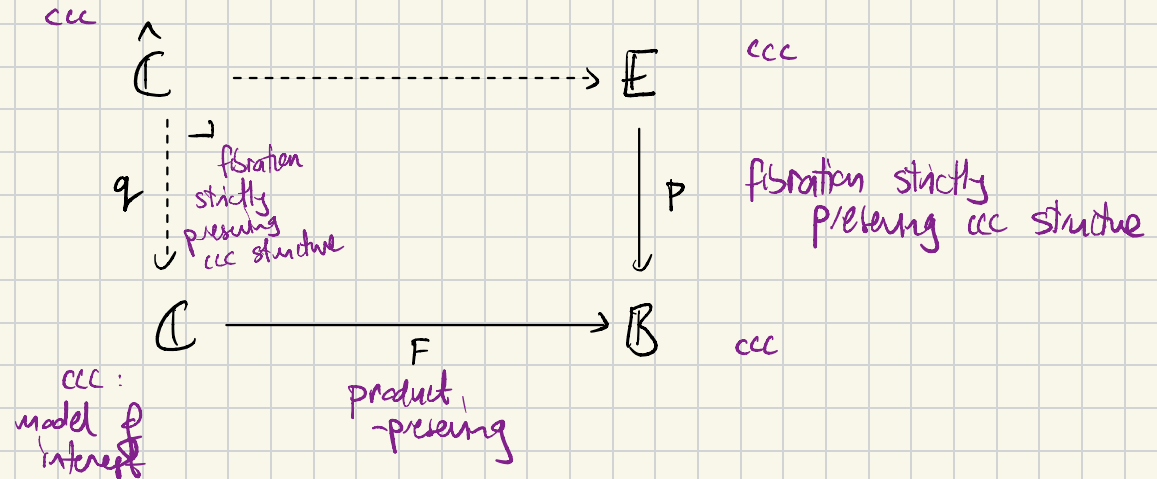 ccc
ℂ̂
𝔼
ccc
fibration
strictly
preserving
ccc structure
q
p
fibration strictly
preserving ccc structure
ℂ
F
𝔹
ccc
ccc :
model of
interest
product
-preserving